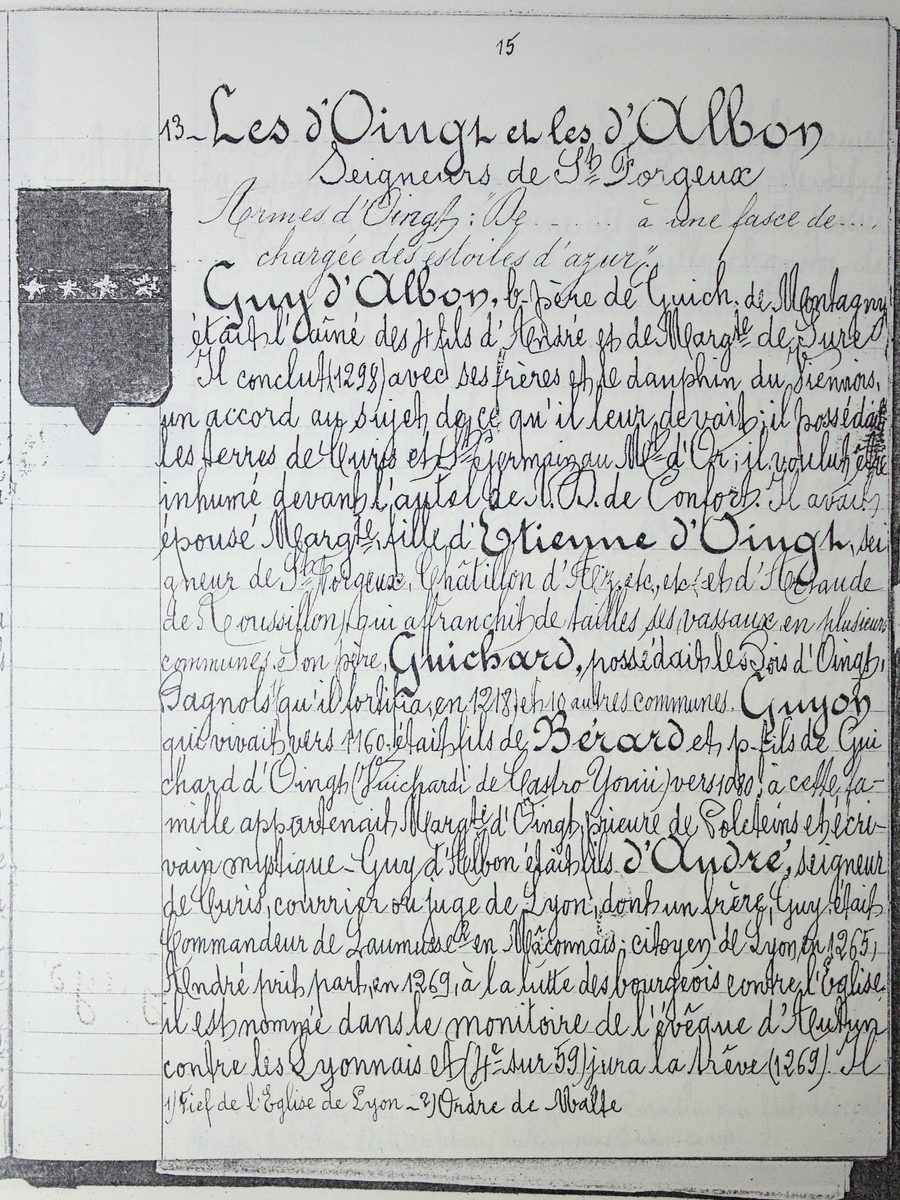 15
13_ Les d'Oingt et les d'Albon
Seigneurs de St Forgeux
Armes d'Oingt : "De ........ à une fasce de....
chargée des estoiles d'azur".
Guy d'Albon, b-père de Guich. de Montagny
était l'aîné des 4 fils d'André et de Margte de Sure
Il conclut (1298) avec ses frères et le dauphin du Viennois,
un accord au sujet de ce qu'il leur devait; il possédait
les terres de Curis et St Germain au Mt d'Or; il voulut être
inhumé devant l'autel de N. D. de Confort. Il avait
épousé Margte, fille d'Etienne d'Oingt, sei
gneur de St Forgeux, Châtillon d'Az. etc, etc. et d'Artaude
de Roussillon, qui affranchit de tailles, ses vassaux, en plusieurs
communes. Son père, Guichard, possédait les Bois d'Oingt,
Bagnols (qu'il fortifia, en 1218) et 10 autres communes. Guyon
qui vivait vers 1160, était fils de Bérard et p-fils de Gui
chard d'Oingt (Guichardi de Castro Yonii) vers 1080; à cette fa-
mille appartenait Margte d'Oingt, prieure de Poleteins et écri-
vain mystique_ Guy d'Albon était fils d'André, seigneur
de Curis, courrier ou juge de Lyon, dont un frère, Guy, était
Commandeur de Laumusse en Mâconnais; citoyen de Lyon, en 1265,
André prit part, en 1269, à la lutte des bourgeois contre l'Eglise.
il est nommé dans le monitoire de l'évêque d'Autun
contre les Lyonnais et (4e sur 59) jura la trêve (1269). Il
1) Fief de l'Eglise de Lyon _ 2) Ordre de Malte